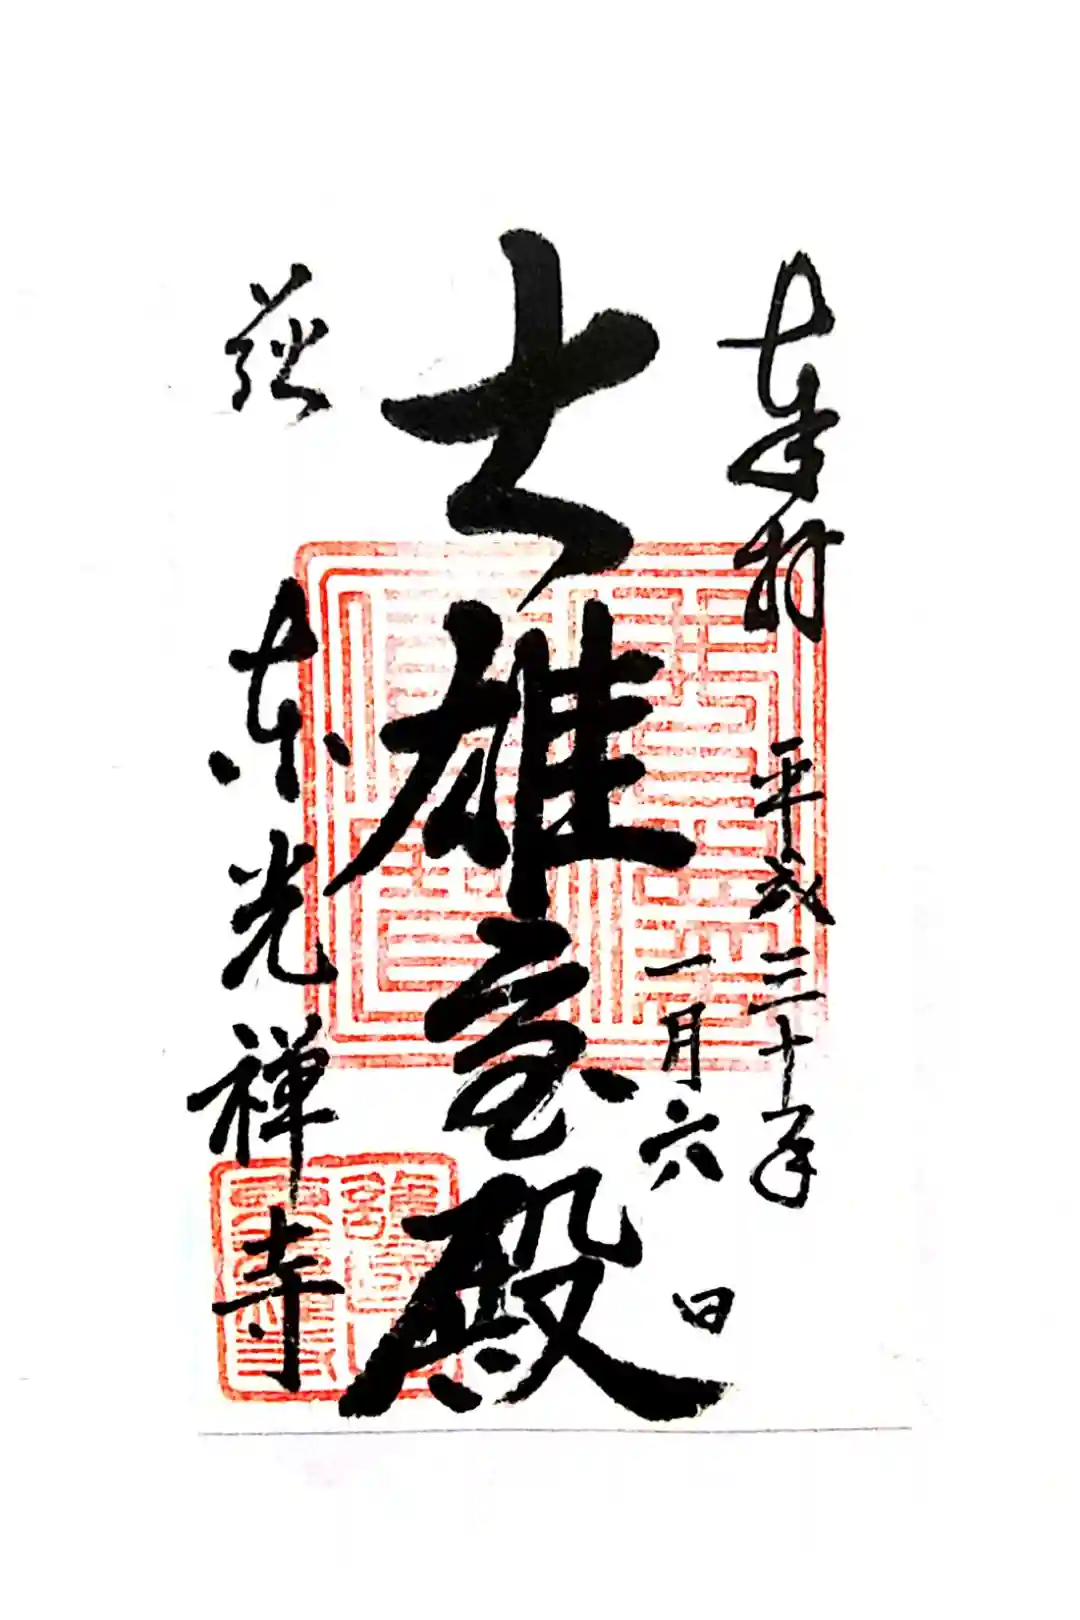 奉拝
平成三十年
一月六日
大雄宝殿
萩
東光禅寺